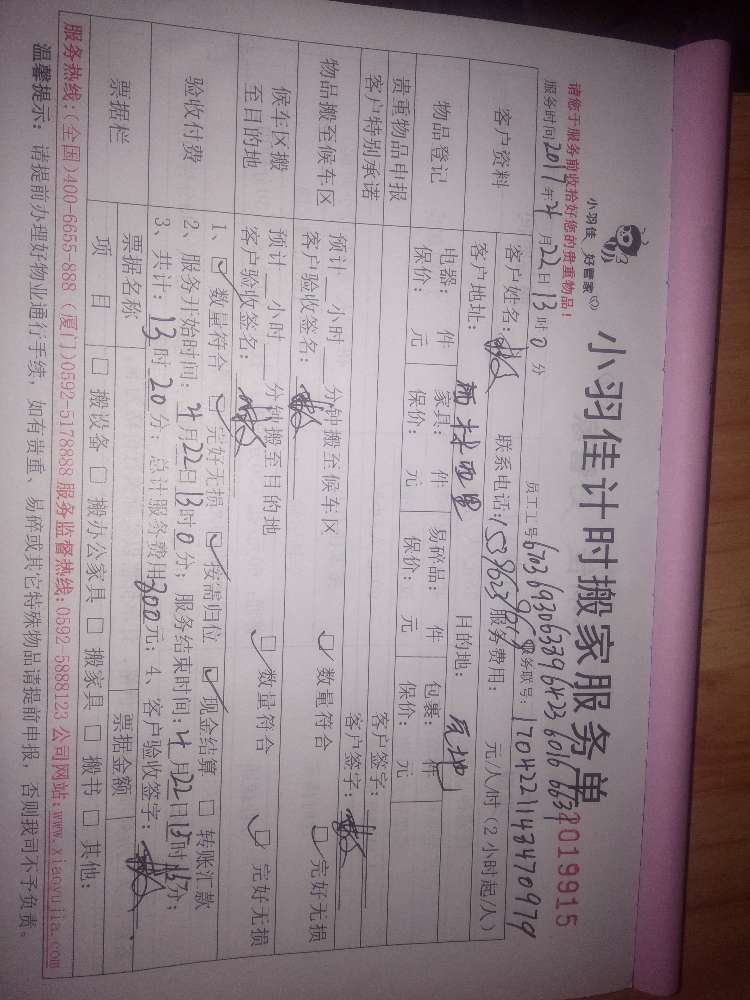 小羽佳 好管家
小羽佳计时搬家服务单
2019915
请您于服务前收拾好您的贵重物品!
员工工号:6703 6930 6339 6423 6016 6639
服务时间2017年4月22日13时0分
服务联号:170422114347097
客户资料
客户姓名: 联系电话: 服务费用: 元/人/时(2小时起/人)
客户地址: 西里 目的地: 原地
物品登记
电器: 件 家具: 件 易碎品: 件 包裹: 件
保价: 元 保价: 元 保价: 元 保价: 元
贵重物品申报
客户签字:
客户特别承诺
客户签字:
物品搬至候车区
预计 小时 分钟搬至候车区 ☑ 数量符合 ☑ 完好无损
客户验收签名:
候车区搬至目的地
预计 小时 分钟搬至目的地 ☑ 数量符合 ☑ 完好无损
客户验收签名:
验收付费
1、☑ 数量符合 ☑ 完好无损 ☑ 按需归位 ☑ 现金结算 □ 转账汇款
2、服务开始时间:4月22日13时0分;服务结束时间:4月22日15时 分;
3、共计:13时20分;总计服务费用200元;4、客户验收签字:
票据栏
票据名称 票据金额
项目 □ 搬设备 □ 搬办公家具 □ 搬家具 □ 搬书 □ 其他:
服务热线:(全国)400-6655-888 (厦门)0592-5178888 服务监督热线:0592-5888123 公司网站:www.xiaoyujia.com
温馨提示:请提前办理好物业通行手续,如有贵重、易碎或其它特殊物品请提前申报,否则我司不予负责。